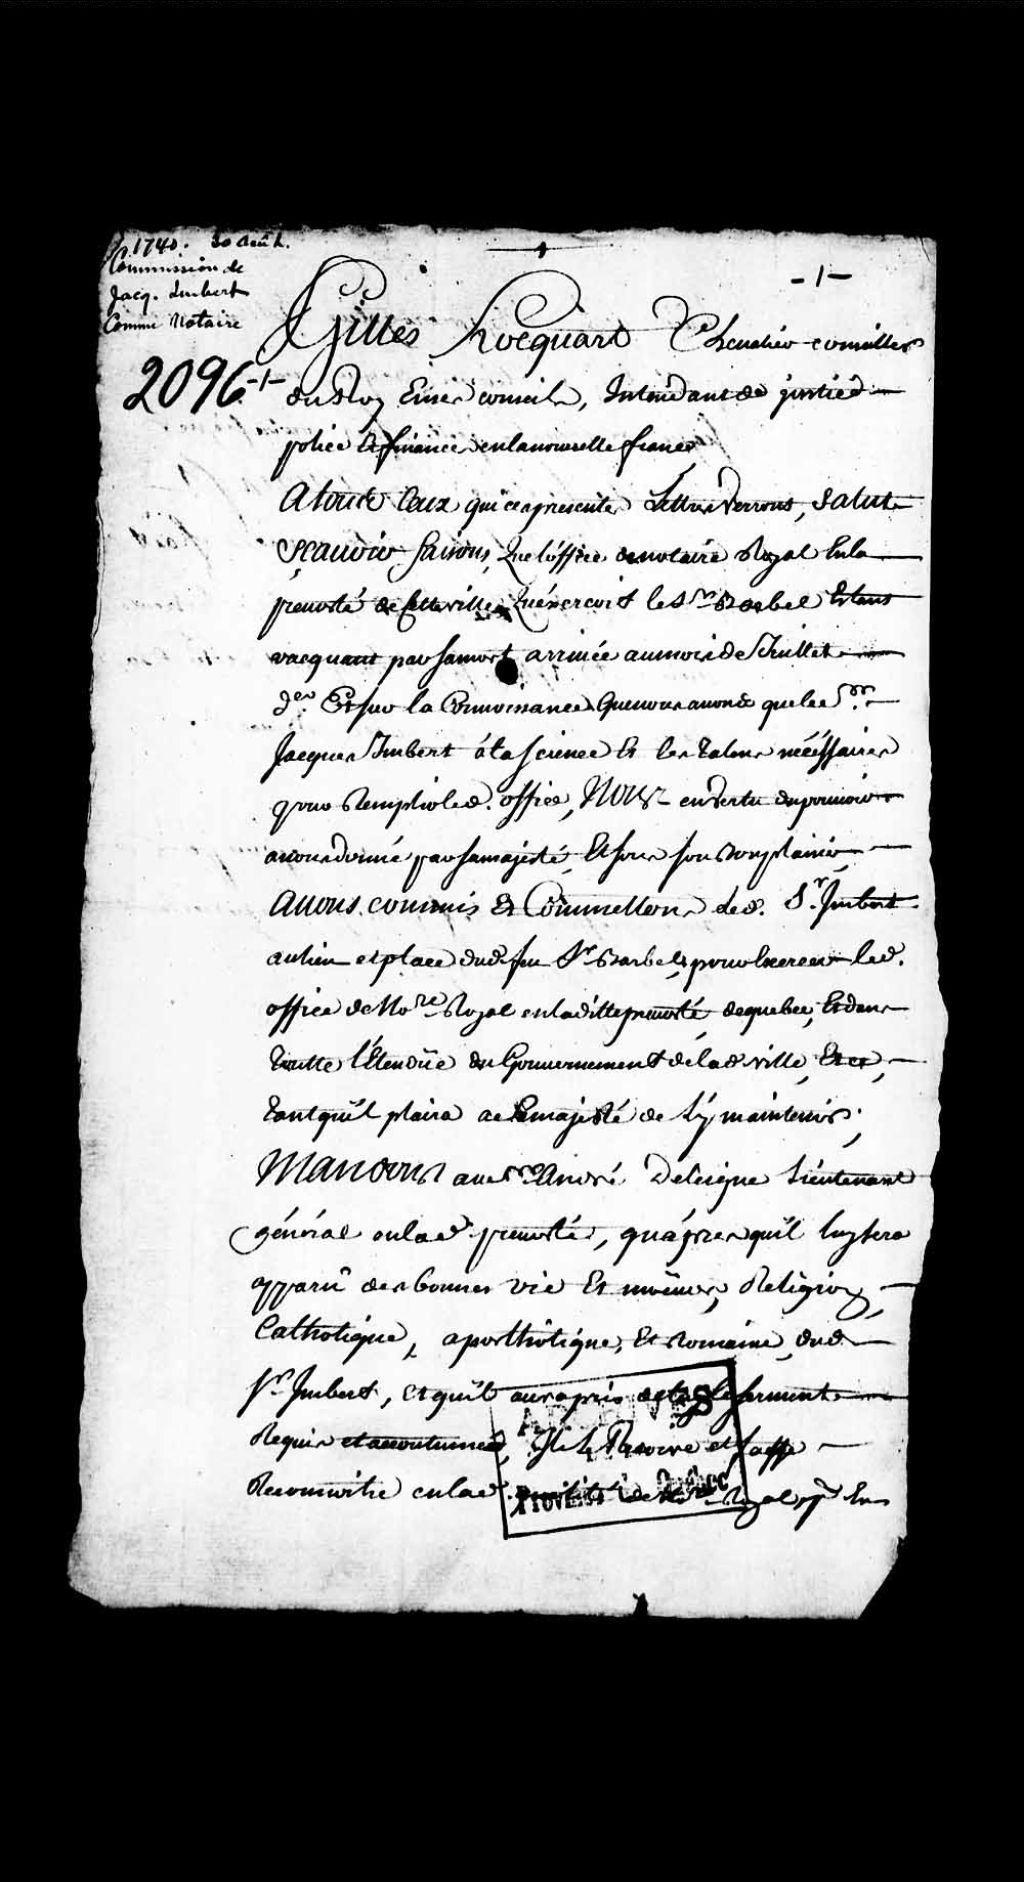 1740. 30 Août.
Commission de
Jacq. Imbert
Comme Notaire
-1-
2096 -1-
Gilles Hocquart Chevalier conseiller
du Roy En ses conseils, Intendant de justice
police & finance en la nouvelle france
A tous Ceux qui ces presentes Lettres verront, Salut
Sçavoir faisons, Que l'office de notaire Royal En la
prevosté de Cette ville, Qu'éxerçoit le Sr. Barbel Estant
vacquant par sa mort arrivée au mois de Juillet
der. Et sur la Connoissance que nous avons que le Sr.
Jacques Imbert à la science Et les talens nécéssaires
pour Remplir led. office, Nous en vertu du pouvoir
a nous donné par sa majesté, Et sous son bon plaisir,
Avons commis Et Commettons led. Sr. Imbert
au lieu et place dud. feu Sr Barbel, pour Exercer led.
office de Nore. Royal en la ditte prevosté de quebec, Et dans
toutte l'Étendüe du Gouvernement de lad. ville, Et ce,
tant qu'il plaira a sa majesté de l'y maintenir;
Mandons au Sr. André Deleigne Lieutenant
général en lad. prevosté, qu'après qu'il luy sera
apparû des bonnes vie Et mœurs, Religion
Catholique, aposthólique, Et Romaine, dud.
Sr. Imbert, et qu'il aura pris de luy le serment
Requis et accoutumé, Il le Reçoive et fasse
Reconnoitre en lad. qualité de Nore. Royal, pr. En
ARCHIVES
Province de Québec